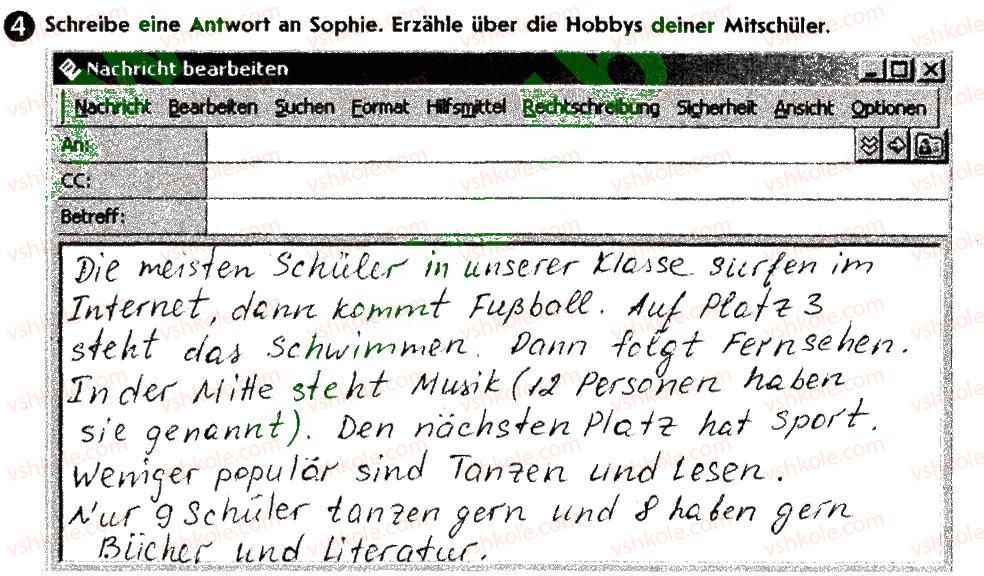 4 Schreibe eine Antwort an Sophie. Erzähle über die Hobbys deiner Mitschüler.
Nachricht bearbeiten
Nachricht Bearbeiten Suchen Format Hilfsmittel Rechtschreibung Sicherheit Ansicht Optionen
An:
CC:
Betreff:
Die meisten Schüler in unserer Klasse surfen im
Internet, dann kommt Fußball. Auf Platz 3
steht das Schwimmen. Dann folgt Fernsehen.
In der Mitte steht Musik (12 Personen haben
sie genannt). Den nächsten Platz hat Sport.
Weniger populär sind Tanzen und Lesen.
Nur 9 Schüler tanzen gern und 8 haben gern
Bücher und Literatur.
vshkole.com